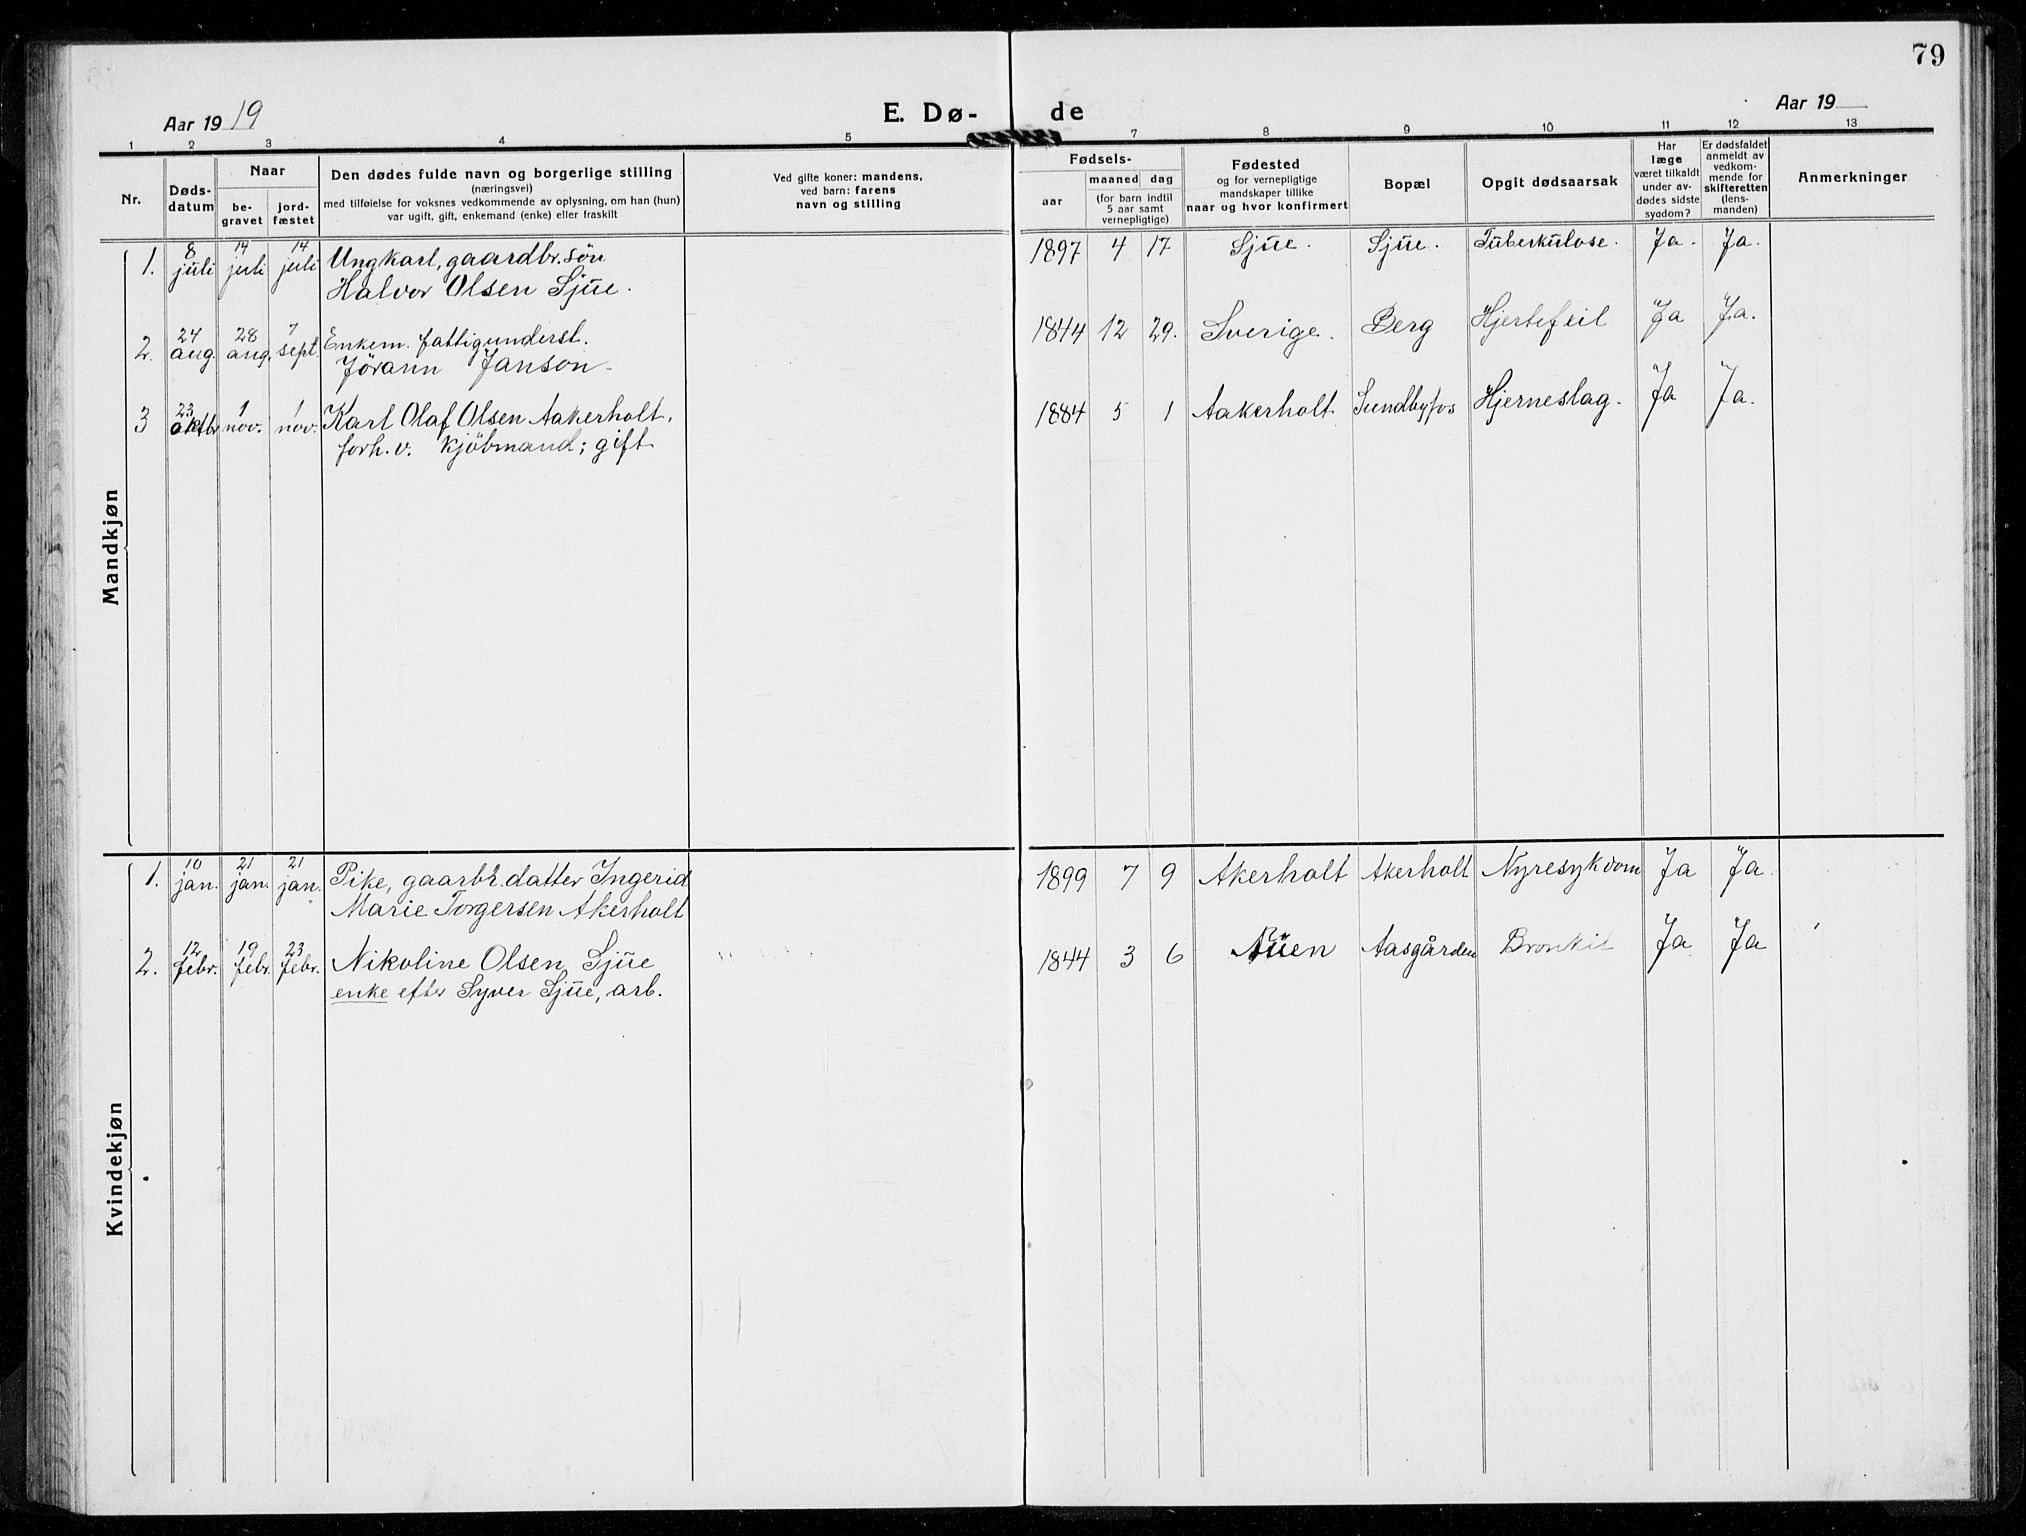 79
Aar 1919
E. Dø-
de
Aar 19
1 2 3 4 5 7 8 9 10 11 12 13
Nr.
Døds-
datum
Naar
be-
gravet
jord-
fæstet
Den dødes fulde navn og borgerlige stilling
(næringsvei)
med tilføielse for voksnes vedkommende av oplysning, om han (hun)
var ugift, gift, enkemand (enke) eller fraskilt
Ved gifte koner: mandens,
ved barn: farens
navn og stilling
Fødsels-
aar
maaned dag
(for barn indtil
5 aar samt
vernepligtige)
Fødested
og for vernepligtige
mandskaper tillike
naar og hvor konfirmert
Bopæl
Opgit dødsaarsak
Har
læge
været tilkaldt
under av-
dødes sidste
sygdom?
Er dødsfaldet
anmeldt av
vedkom-
mende for
skifteretten
(lens-
manden)
Anmerkninger
Mandkjøn
8 14 14
1. juli juli juli Ungkarl, gaardbr. søn 1897 4 17 Sjue. Sjue. Tuberkulose. Ja. Ja.
Halvor Olsen Sjue.
24 28 7
2. aug. aug. sept. Enkem. fattigunderst. 1844 12 29. Sverige. Berg Hjertefeil Ja Ja.
Jørann Janson
23 1 1
3 oktbr nov. nov. Karl Olaf Olsen Aakerholt, 1884 5 1 Aakerholt Sundbyfos Hjerneslag. Ja Ja.
forh. v. kjöbmand; gift
Kvindekjøn
10 21 21
1. jan. jan. jan. Pike, gaarbr. datter Ingerid 1899 7 9 Akerholt Akerholt Nyresykdom Ja Ja
Marie Torgersen Akerholt
12 19 23
2. febr. febr. febr. Nikoline Olsen Sjue 1844 3 6 Aasgården Bronkit Ja Ja
enke efter Syver Sjue, arb.